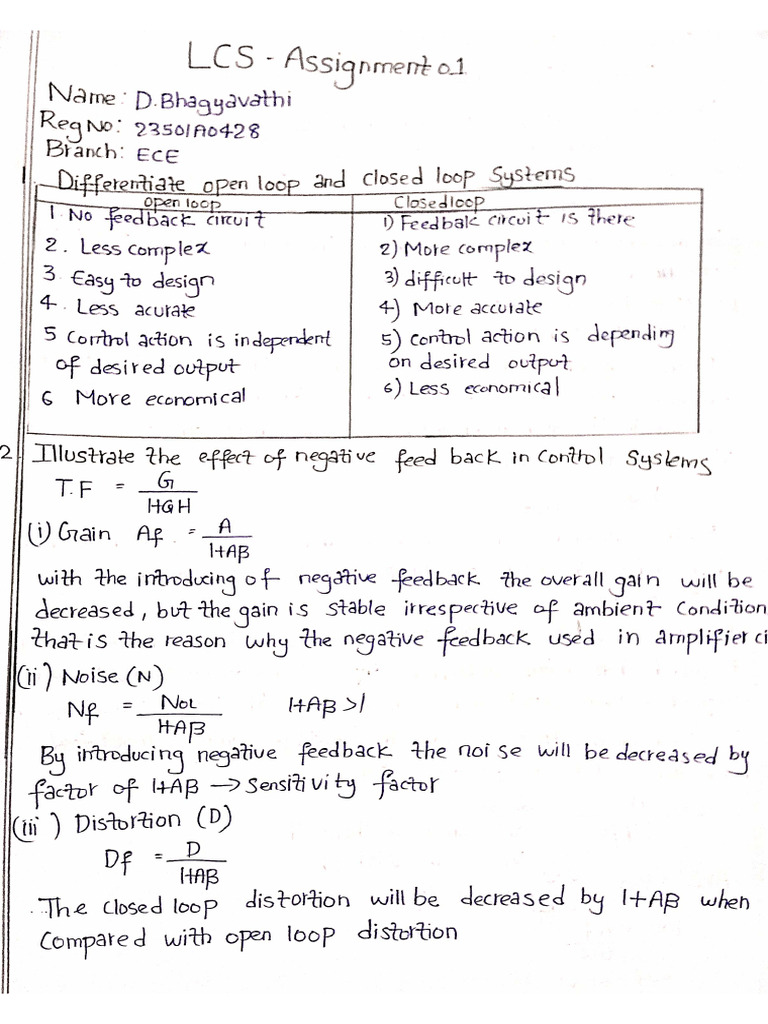 LCS - Assignment 01
Name: D.Bhagyavathi
Reg No: 23501A0428
Branch: ECE
1 Differentiate open loop and closed loop Systems
open loop
1. No feedback circuit
2. Less complex
3 Easy to design
4. Less acurate
5 Control action is independent
of desired output
6 More economical
Closed loop
1) Feedback circuit is there
2) More complex
3) difficult to design
4) More accurate
5) control action is depending
on desired output
6) Less economical
2 Illustrate the effect of negative feed back in control Systems
T.F = G / 1+GH
(i) Gain Af = A / 1+Aβ
with the introducing of negative feedback the overall gain will be
decreased, but the gain is stable irrespective of ambient condition
that is the reason why the negative feedback used in amplifier ci
(ii) Noise (N)
Nf = NOL / 1+Aβ 1+Aβ >1
By introducing negative feedback the noise will be decreased by
factor of 1+Aβ → Sensitivity factor
(iii) Distortion (D)
Df = D / 1+Aβ
The closed loop distortion will be decreased by 1+Aβ when
compared with open loop distortion